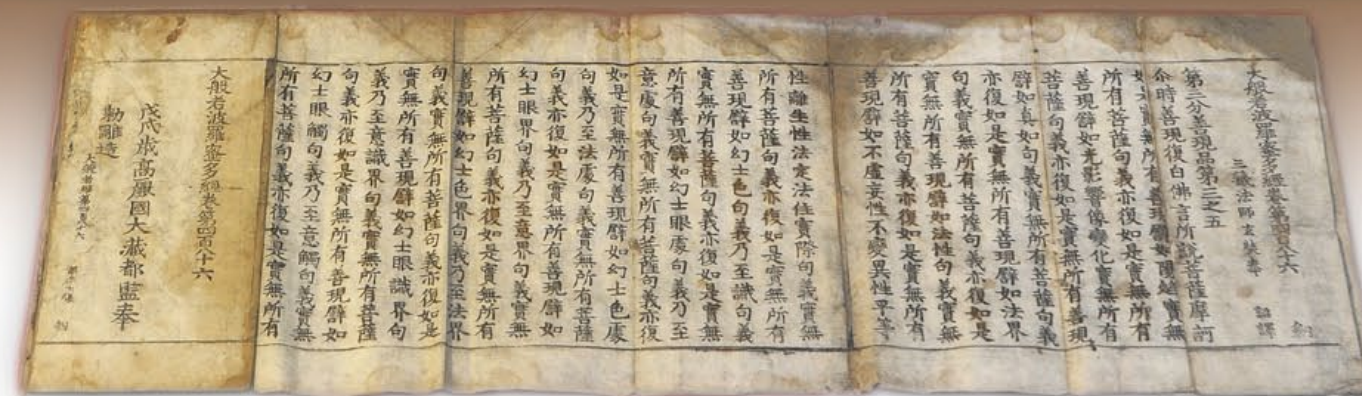 大般若波羅蜜多經卷第四百八十六 劔
三藏法師玄奘奉 詔譯
第三分善現品第三之五
尒時善現復白佛言所說菩薩摩訶
如是實無所有善現譬如陽焰實無
所有菩薩句義亦復如是實無所有
善現譬如光影響像變化實無所有
菩薩句義亦復如是實無所有善現
譬如真如句義實無所有菩薩句義
亦復如是實無所有善現譬如法界
句義實無所有菩薩句義亦復如是
實無所有善現譬如法性句義實無
所有菩薩句義亦復如是實無所有
善現譬如不虛妄性不變異性平等
性離生性法定法住實際句義實無
所有菩薩句義亦復如是實無所有
善現譬如幻士色句義乃至識句義
實無所有菩薩句義亦復如是實無
所有善現譬如幻士眼處句義乃至
意處句義實無所有菩薩句義亦復
如是實無所有善現譬如幻士色處
句義乃至法處句義實無所有菩薩
句義亦復如是實無所有善現譬如
幻士眼界句義乃至意界句義實無
所有菩薩句義亦復如是實無所有
善現譬如幻士色界句義乃至法界
句義實無所有菩薩句義亦復如是
實無所有善現譬如幻士眼識界句
義乃至意識界句義實無所有菩薩
句義亦復如是實無所有善現譬如
幻士眼觸句義乃至意觸句義實無
所有菩薩句義亦復如是實無所有
大般若波羅蜜多經卷第四百八十六
戊戌歲高麗國大藏都監奉
勅雕造